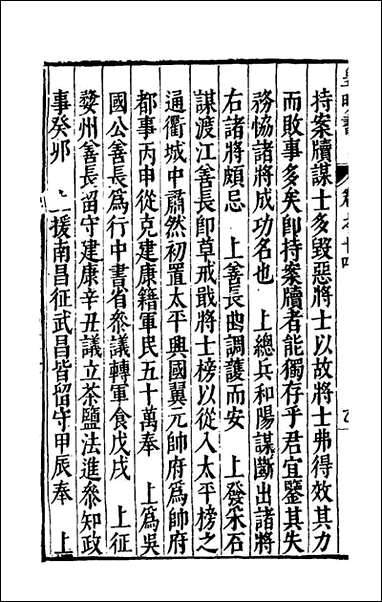 皇明書 卷之十四
持案牘謀士多毀惡將士以故將士弗得效其力
而敗事多矣卽持案牘者能獨存乎君宜鑒其失
務恊諸將成功名也 上總兵和陽謀斷出諸將
右諸將頗忌 上善長曲調護而安 上發采石
謀渡江善長卽草戒戢將士榜以從入太平榜之
通衢城中肅然初置太平興國翼元帥府爲帥府
都事丙申從克建康籍軍民五十萬奉 上爲吳
國公善長爲行中書省叅議轉軍食戊戌 上征
婺州善長留守建康辛丑議立茶鹽法進叅知政
事癸卯 上援南昌征武昌皆留守甲辰奉 上